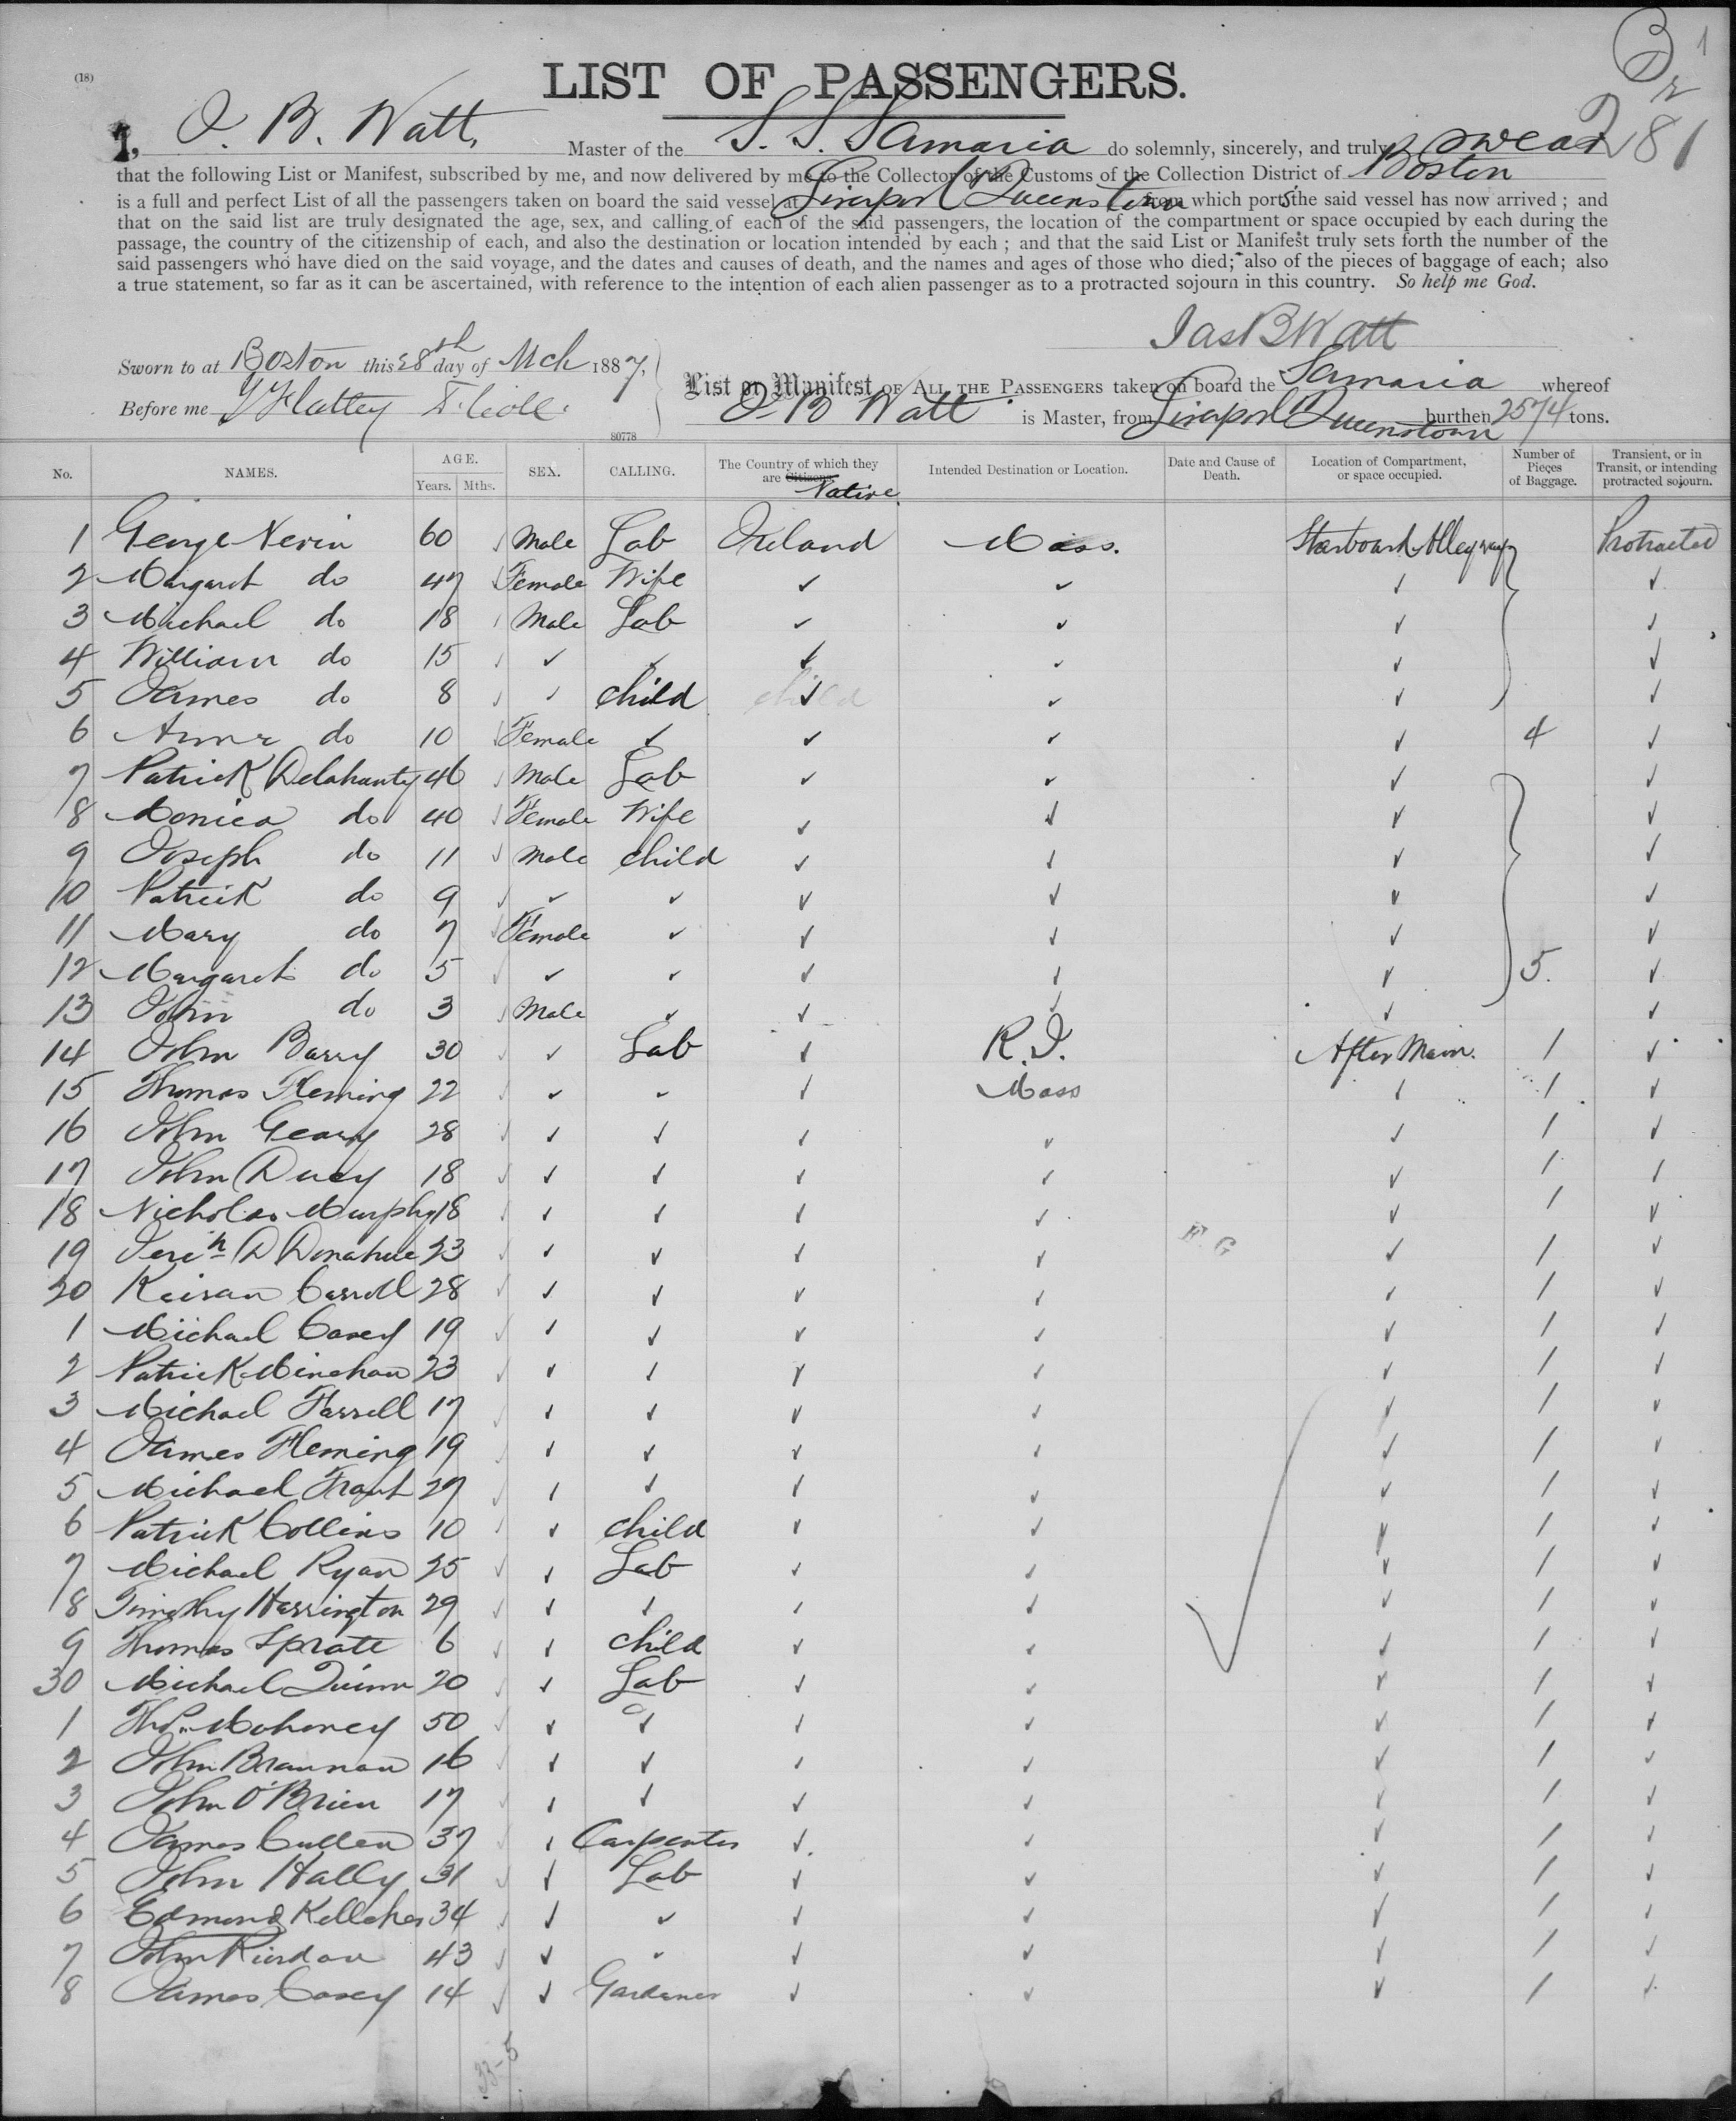 (18)
LIST OF PASSENGERS.
3 1
281
I, J. B. Watt, Master of the S. S. Samaria do solemnly, sincerely, and truly swear
that the following List or Manifest, subscribed by me, and now delivered by me to the Collector of the Customs of the Collection District of Boston
is a full and perfect List of all the passengers taken on board the said vessel at Liverpool Queenstown from which ports the said vessel has now arrived ; and
that on the said list are truly designated the age, sex, and calling of each of the said passengers, the location of the compartment or space occupied by each during the
passage, the country of the citizenship of each, and also the destination or location intended by each ; and that the said List or Manifest truly sets forth the number of the
said passengers who have died on the said voyage, and the dates and causes of death, and the names and ages of those who died; also of the pieces of baggage of each; also
a true statement, so far as it can be ascertained, with reference to the intention of each alien passenger as to a protracted sojourn in this country. So help me God.
Jas B Watt
Sworn to at Boston this 28th day of Mch 1887,
Before me
List or Manifest OF ALL THE PASSENGERS taken on board the Samaria whereof
J. B Watt is Master, from Liverpool Queenstown burthen 2574 tons.
80778
No. NAMES. AGE. Years. Mths. SEX. CALLING. The Country of which they are Citizens. Native Intended Destination or Location. Date and Cause of Death. Location of Compartment, or space occupied. Number of Pieces of Baggage. Transient, or in Transit, or intending protracted sojourn.
1 George Nevin 60 ✓ Male Lab Ireland Mass. Starboard Alleyway Protracted
2 Margaret do 47 ✓ Female Wife ✓ ✓ ✓ ✓
3 Michael do 18 ✓ Male Lab ✓ ✓ ✓ ✓
4 William do 15 ✓ ✓ ✓ ✓ ✓ ✓ ✓
5 James do 8 ✓ ✓ child ✓ ✓ ✓ ✓
6 Anne do 10 ✓ Female ✓ ✓ ✓ ✓ 4 ✓
7 Patrick Delahanty 46 ✓ Male Lab ✓ ✓ ✓ ✓
8 Monica do 40 ✓ Female Wife ✓ ✓ ✓ ✓
9 Joseph do 11 ✓ Male child ✓ ✓ ✓ ✓
10 Patrick do 9 ✓ ✓ ✓ ✓ ✓ ✓ ✓
11 Mary do 7 ✓ Female ✓ ✓ ✓ ✓ ✓
12 Margaret do 5 ✓ ✓ ✓ ✓ ✓ ✓ 5. ✓
13 John do 3 ✓ Male ✓ ✓ ✓ ✓ ✓
14 John Barry 30 ✓ ✓ Lab ✓ R.I. After Main. 1 ✓
15 Thomas Fleming 22 ✓ ✓ ✓ ✓ Mass ✓ 1 ✓
16 John Geary 28 ✓ ✓ ✓ ✓ ✓ ✓ 1 ✓
17 John Ducy 18 ✓ ✓ ✓ ✓ ✓ ✓ 1 ✓
18 Nicholas Murphy 18 ✓ ✓ ✓ ✓ ✓ ✓ 1 ✓
19 Jerih D Donahue 23 ✓ ✓ ✓ ✓ ✓ F. G ✓ 1 ✓
20 Keiran Carroll 28 ✓ ✓ ✓ ✓ ✓ ✓ 1 ✓
1 Michael Casey 19 ✓ ✓ ✓ ✓ ✓ ✓ 1 ✓
2 Patrick Minehan 23 ✓ ✓ ✓ ✓ ✓ ✓ 1 ✓
3 Michael Farrell 17 ✓ ✓ ✓ ✓ ✓ ✓ 1 ✓
4 James Fleming 19 ✓ ✓ ✓ ✓ ✓ ✓ 1 ✓
5 Michael 27 ✓ ✓ ✓ ✓ ✓ ✓ 1 ✓
6 Patrick Collins 10 ✓ ✓ child ✓ ✓ ✓ 1 ✓
7 Michael Ryan 25 ✓ ✓ Lab ✓ ✓ ✓ 1 ✓
8 Timothy Harrington 29 ✓ ✓ ✓ ✓ ✓ ✓ 1 ✓
9 Thomas Spratt 6 ✓ ✓ child ✓ ✓ ✓ 1 ✓
30 Michael Quinn 20 ✓ ✓ Lab ✓ ✓ ✓ 1 ✓
1 Thos. Mahoney 50 ✓ ✓ ✓ ✓ ✓ ✓ 1 ✓
2 John Brannan 16 ✓ ✓ ✓ ✓ ✓ ✓ 1 ✓
3 John O'Brien 17 ✓ ✓ ✓ ✓ ✓ ✓ 1 ✓
4 James Cullen 37 ✓ ✓ Carpenter ✓ ✓ ✓ 1 ✓
5 John Hally 31 ✓ ✓ Lab ✓ ✓ ✓ 1 ✓
6 Edmond Kelleher 34 ✓ ✓ ✓ ✓ ✓ ✓ 1 ✓
7 John Riordan 43 ✓ ✓ ✓ ✓ ✓ ✓ 1 ✓
8 James Casey 14 ✓ ✓ Gardener ✓ ✓ ✓ 1 ✓
33-5